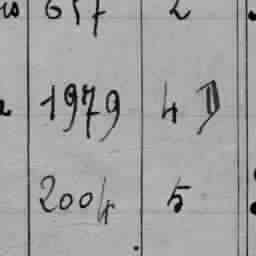 657 2
1979 4 D
2004 5